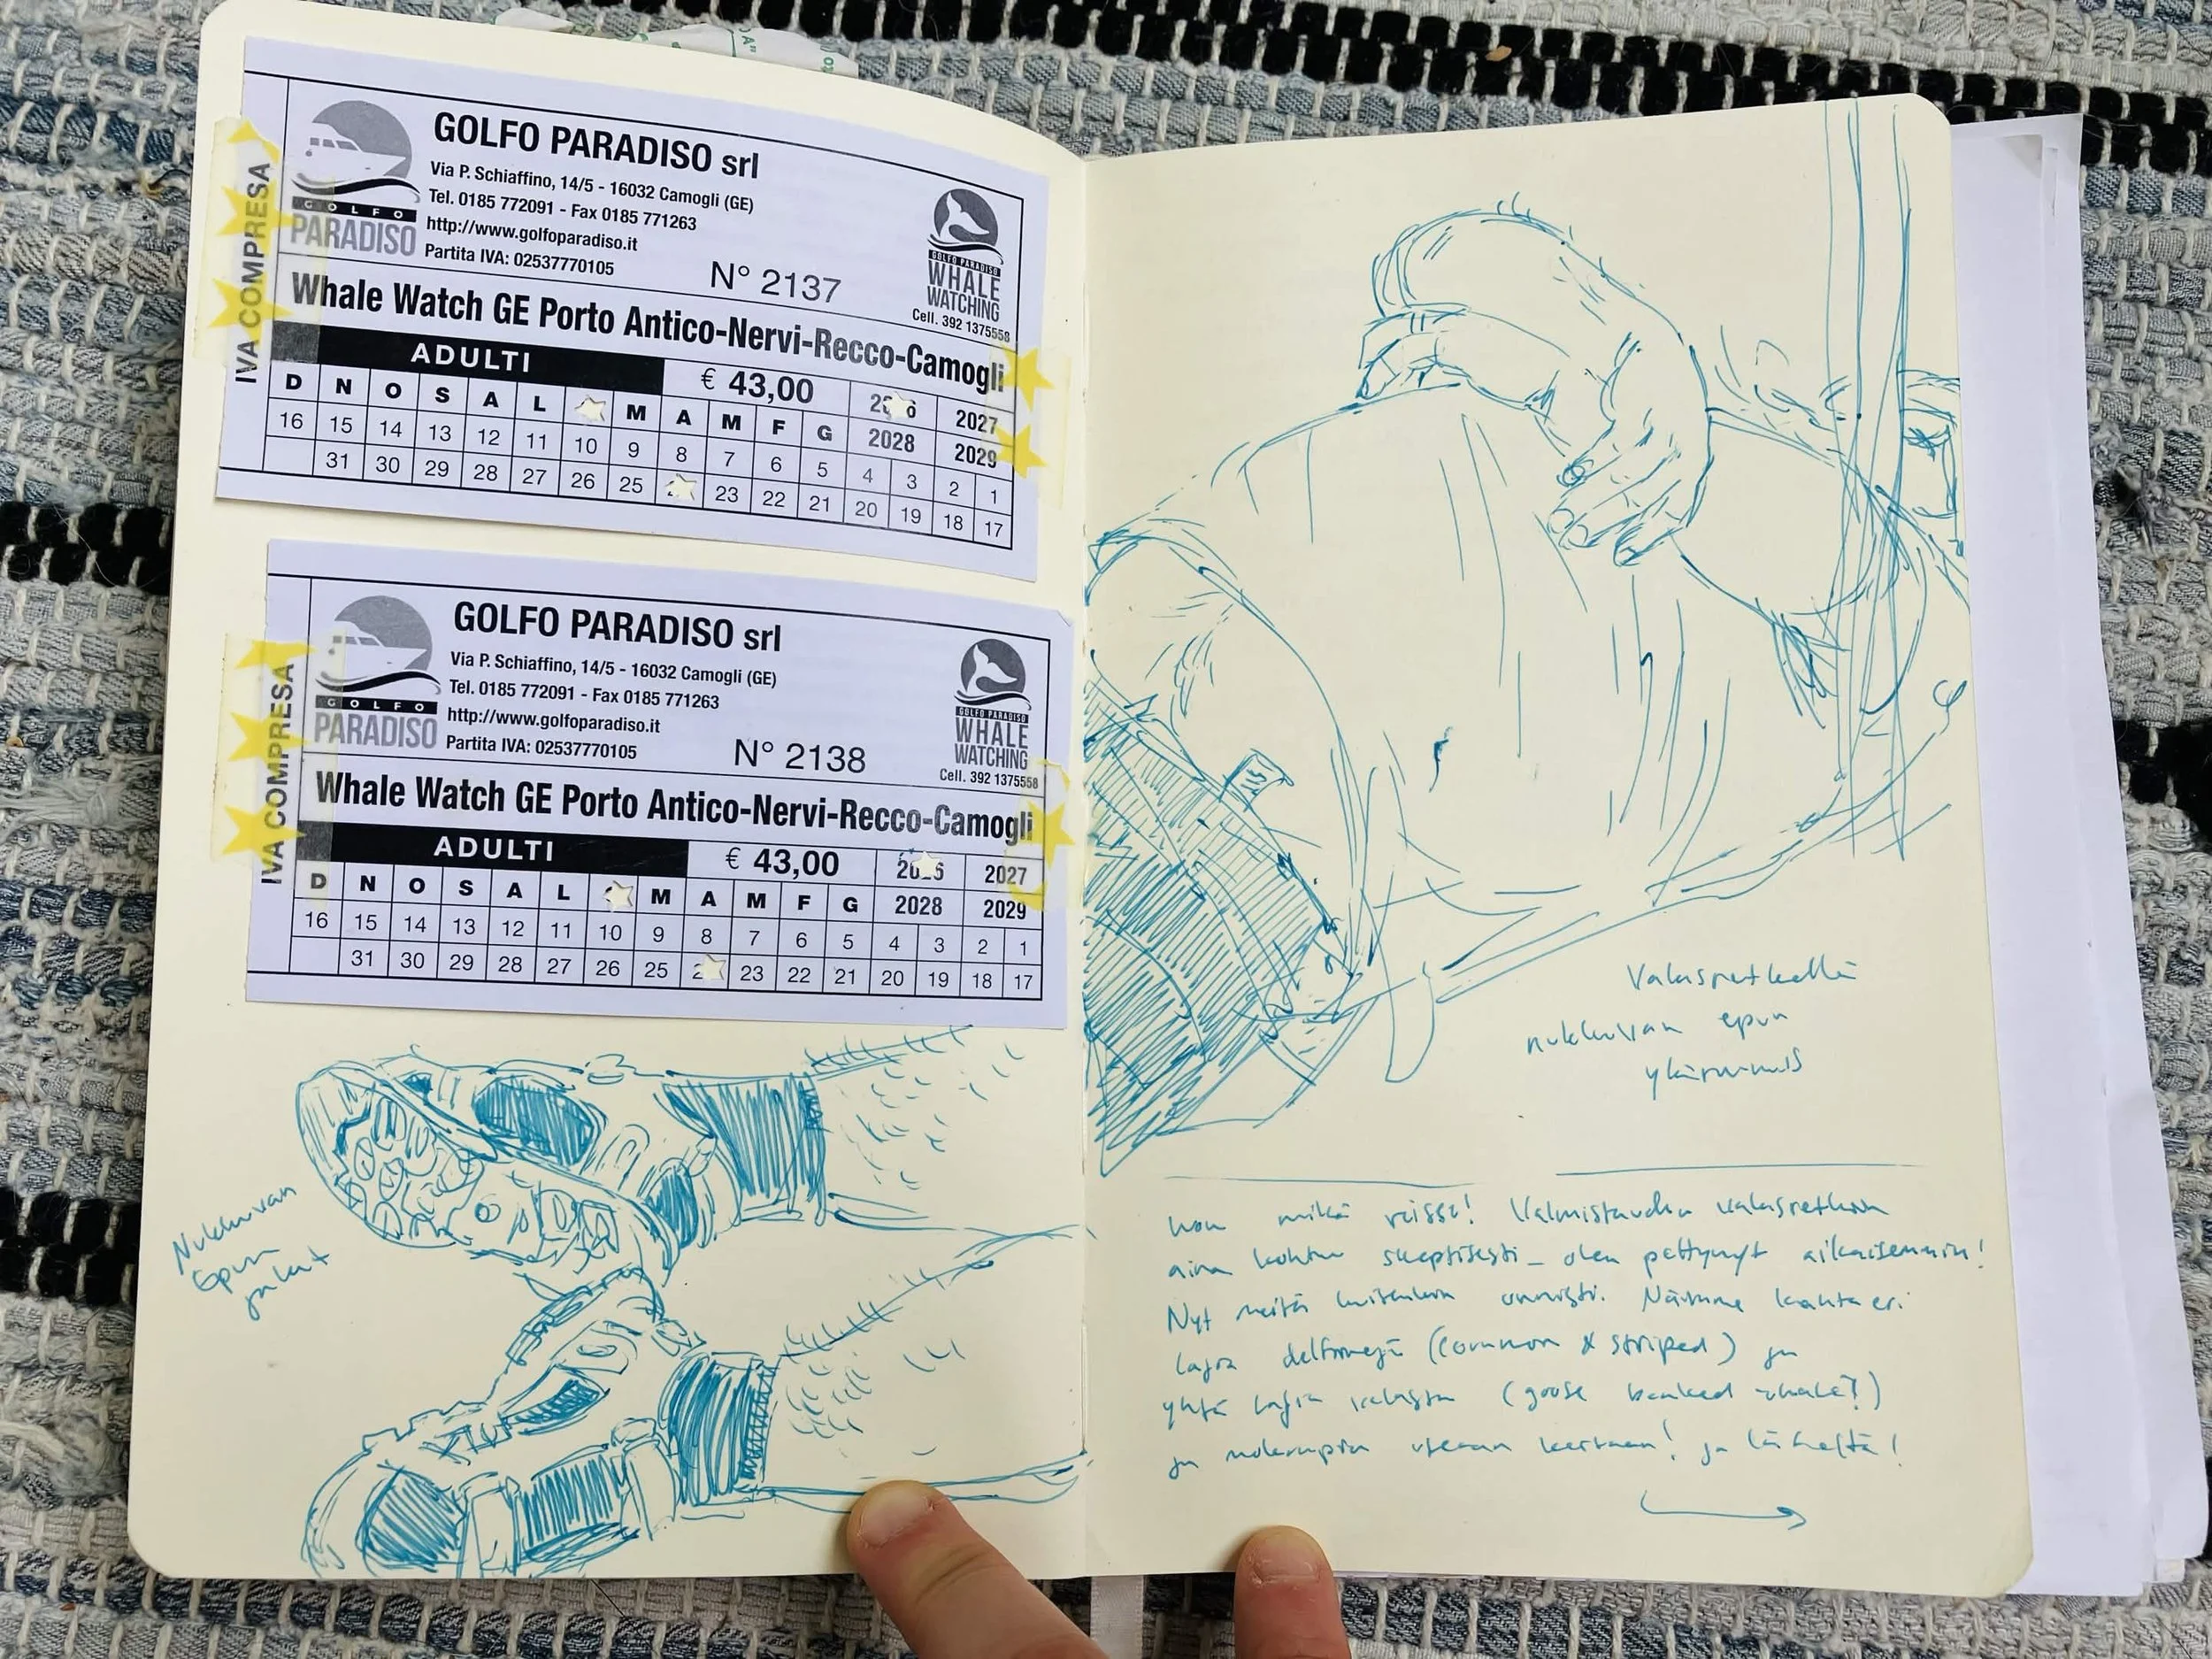 GOLFO PARADISO srl
Via P. Schiaffino, 14/5 - 16032 Camogli (GE)
Tel. 0185 772091 - Fax 0185 771263
http://www.golfoparadiso.it
Partita IVA: 02537770105
N° 2137
GOLFO
PARADISO
GOLFO PARADISO
WHALE
WATCHING
Cell. 392 1375558
IVA COMPRESA
Whale Watch GE Porto Antico-Nervi-Recco-Camogli
ADULTI
€ 43,00
2027
D N O S A L M A M F G 2028 2029
16 15 14 13 12 11 10 9 8 7 6 5 4 3 2 1
31 30 29 28 27 26 25 23 22 21 20 19 18 17
GOLFO PARADISO srl
Via P. Schiaffino, 14/5 - 16032 Camogli (GE)
Tel. 0185 772091 - Fax 0185 771263
http://www.golfoparadiso.it
Partita IVA: 02537770105
N° 2138
GOLFO
PARADISO
GOLFO PARADISO
WHALE
WATCHING
Cell. 392 1375558
IVA COMPRESA
Whale Watch GE Porto Antico-Nervi-Recco-Camogli
ADULTI
€ 43,00
2027
D N O S A L M A M F G 2028 2029
16 15 14 13 12 11 10 9 8 7 6 5 4 3 2 1
31 30 29 28 27 26 25 23 22 21 20 19 18 17
Nukkuvan
Epun
jalat
Valasretkellä
nukkuvan epun
mikä reissu! Valmistaudun valasretkiin
aina kohtu skeptisesti - olen pettynyt aikaisemmin!
Nyt meitä kuitenkin onnisti. Näimme kahta eri
lajia delfiinejä (common & striped) ja
yhtä lajia valasta (goose beaked whale?)
ja molempia useaan kertaan! ja läheltä!